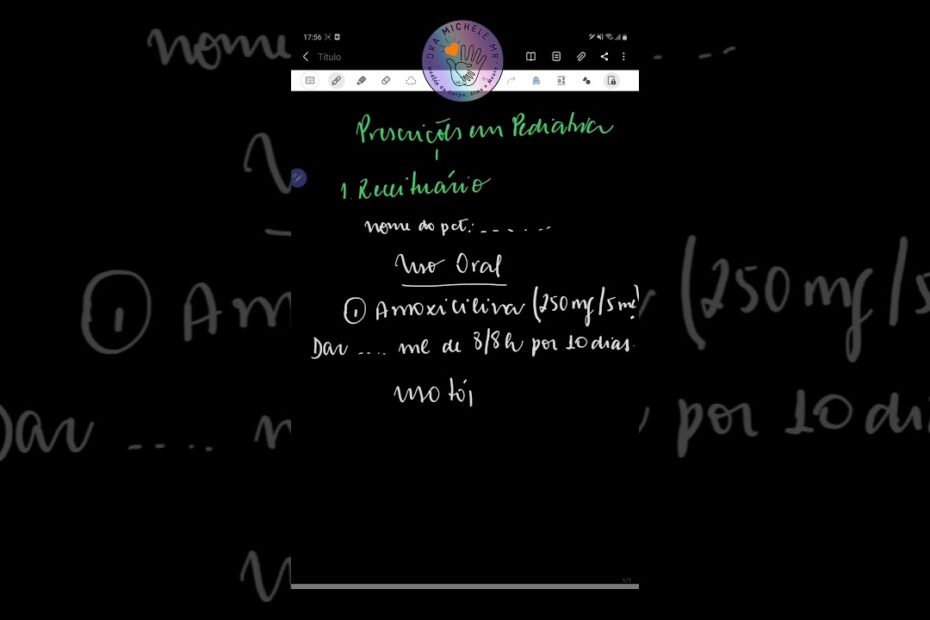 17:56
Título
DRA MICHELE MR
Prescrições em Pediatria
1. Receituário
nome do pct: ---.-...
Uso Oral
① Amoxicilina (250mg/5ml)
Dar .... ml de 8/8h por 10 dias.
uso tó
1/1